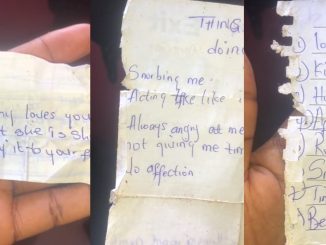 ny loves you
t she is sh
y it to your f
THING
doin
Snorbing me.
Acting like like
Always angry at me
not giving me tim
No affection
lo
Ki
H
R
S
Tim
Be